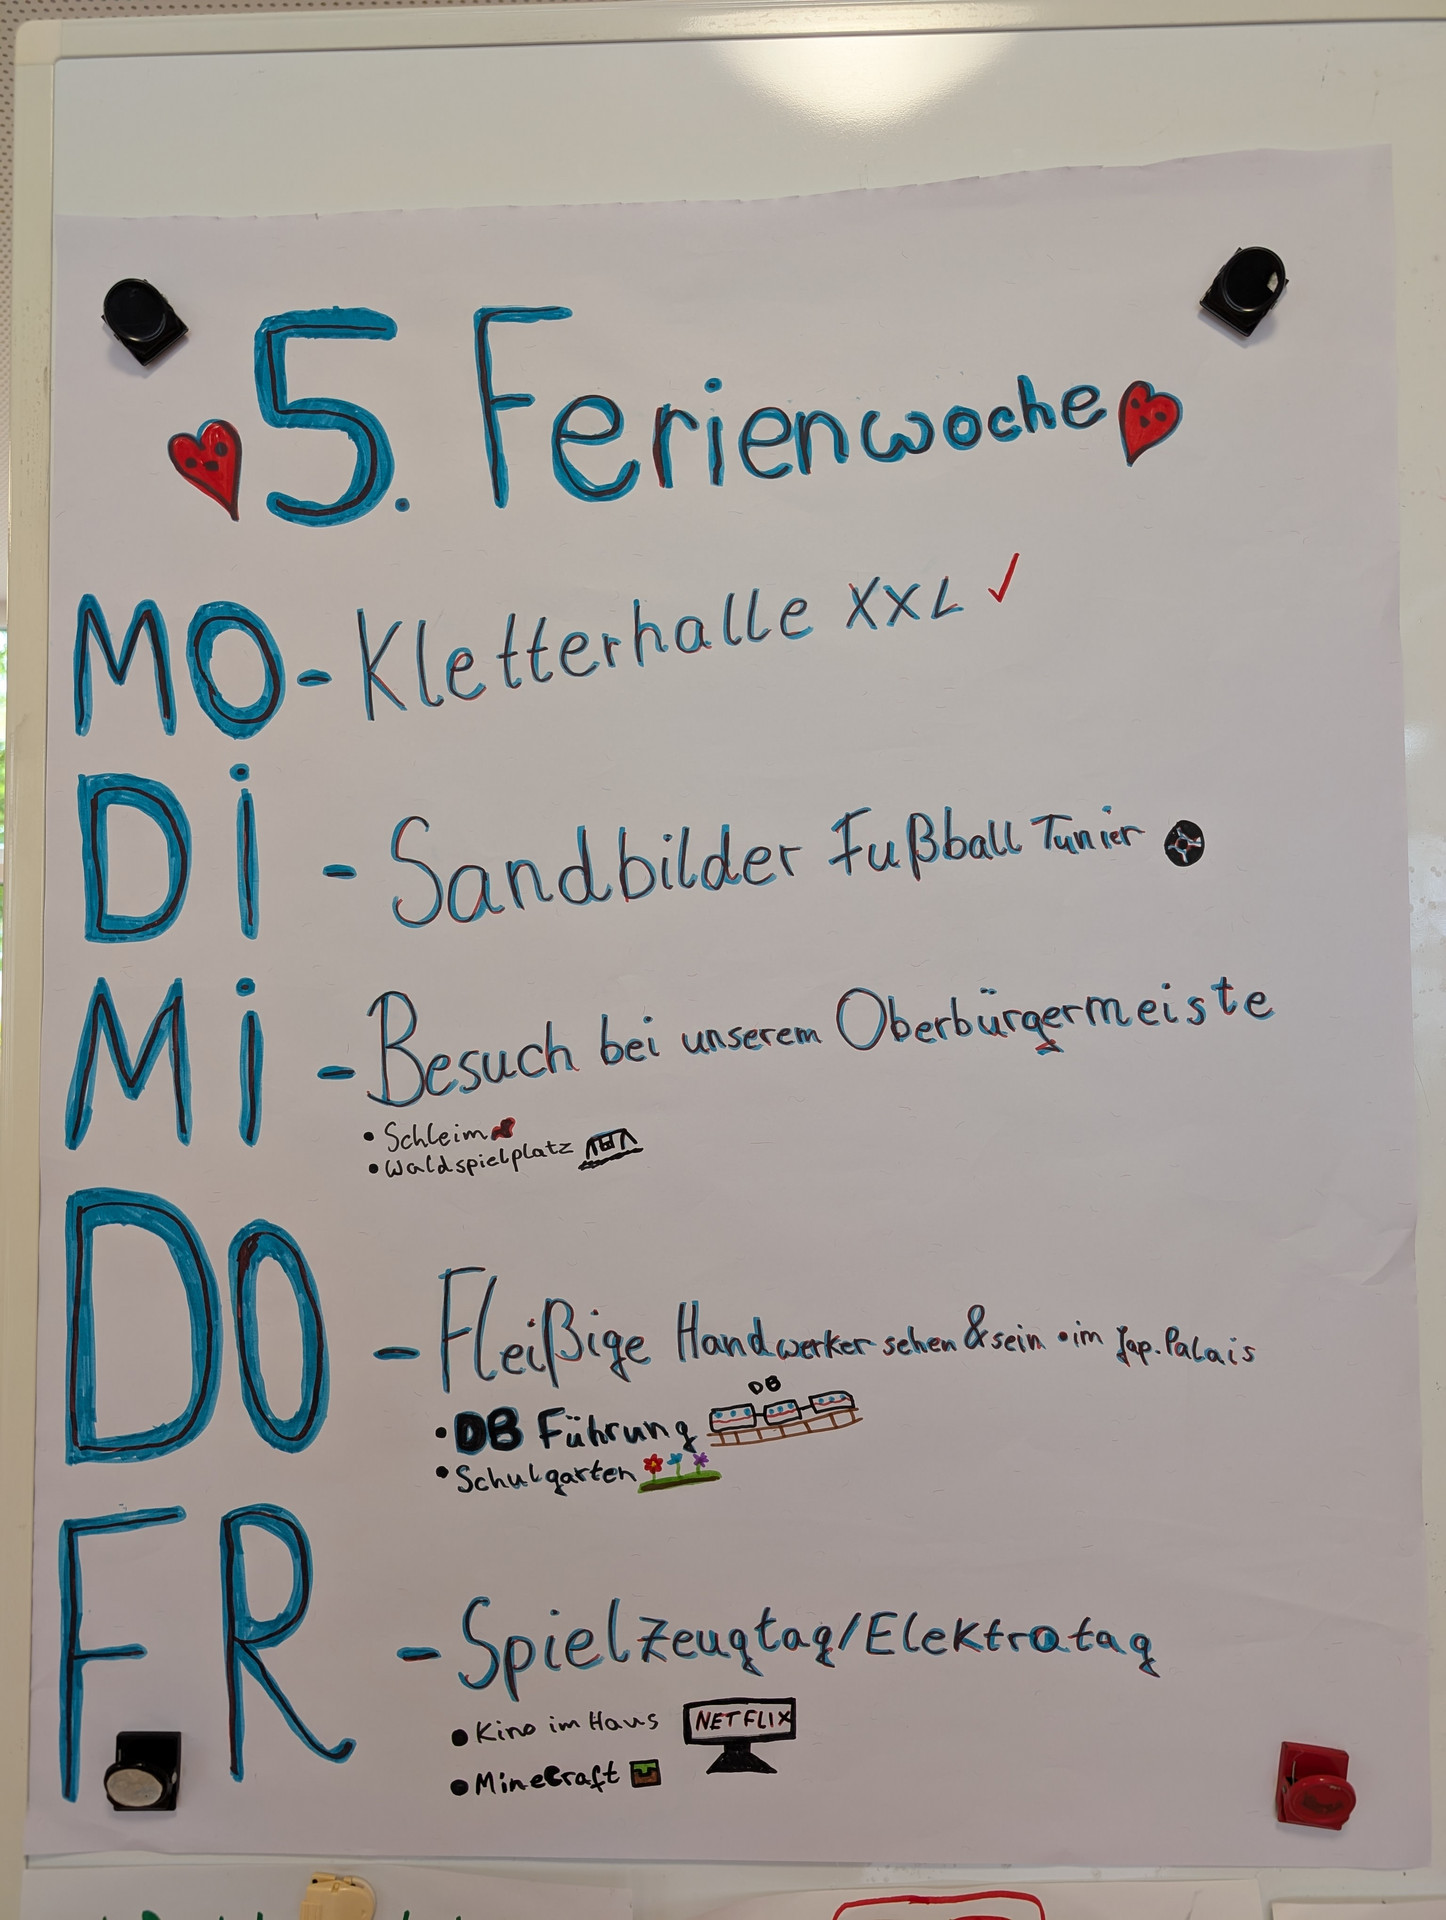 5. Ferienwoche
MO - Kletterhalle XXL ✓
Di - Sandbilder Fußball Tunier
Mi - Besuch bei unserem Oberbürgermeiste
• Schleim
• Waldspielplatz
DO - Fleißige Handwerker sehen & sein • im Jap. Palais
DB
• DB Führung
• Schulgarten
FR - Spielzeugtag/Elektrotag
• Kino im Haus NETFLIX
• Minecraft